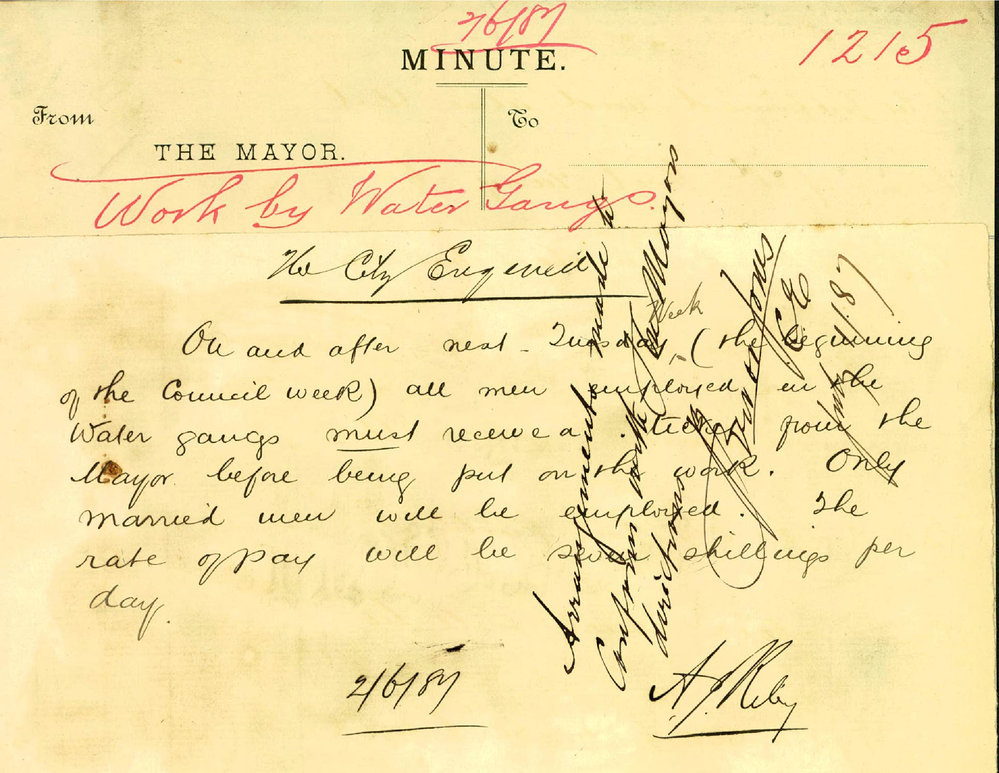 2/6/87
1215
MINUTE.
From
To
THE MAYOR.
Work by Water Gangs.
The City Engineer
Week
On and after next Tuesday, (the beginning
of the Council week) all men employed in the
Water gangs must receive a ticket from the
Mayor before being put on the work. Only
married men will be employed. The
rate of pay will be seven shillings per
day.
2/6/87
A. J. Riley
Arrangements made to
Conform with the Mayors
directions
CE